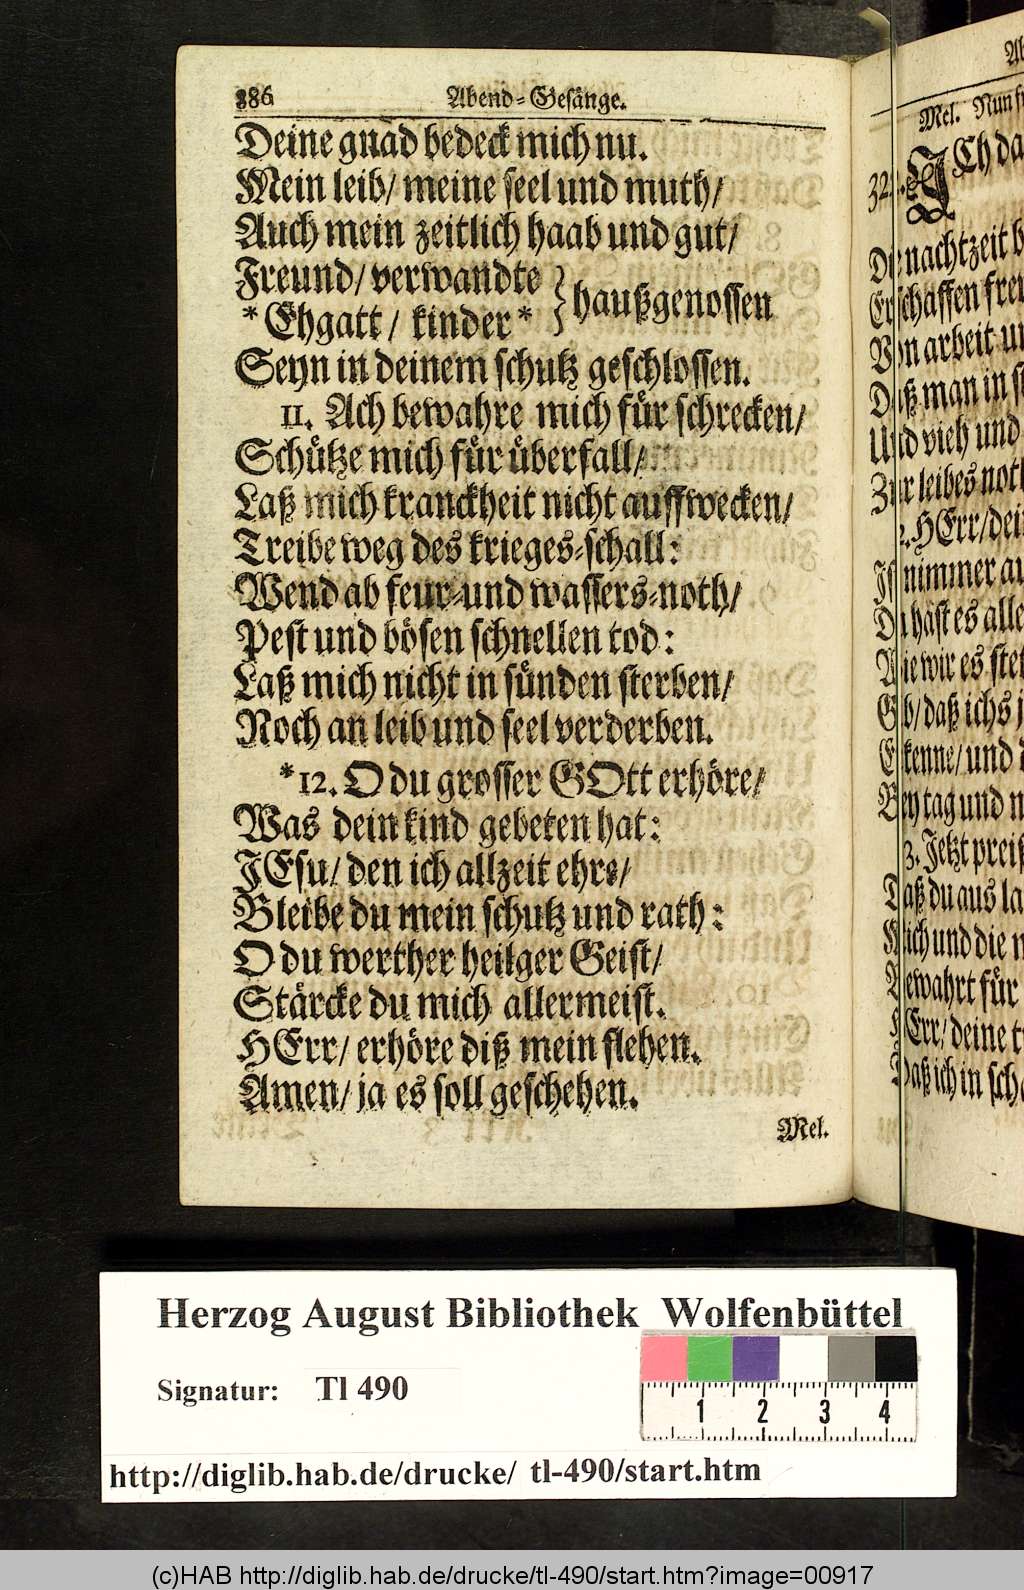 886 Abend-Gesänge.
Deine gnad bedeck mich nu.
Mein leib/ meine seel und muth/
Auch mein zeitlich haab und gut/
Freund/ verwandte } haußgenossen
*Ehgatt/ kinder*
Seyn in deinem schutz geschlossen.
11. Ach bewahre mich für schrecken/
Schütze mich für überfall/
Laß mich kranckheit nicht auffwecken/
Treibe weg des krieges-schall:
Wend ab feur-und wassers-noth/
Pest und bösen schnellen tod:
Laß mich nicht in sünden sterben/
Noch an leib und seel verderben.
*12. O du grosser GOtt erhöre/
Was dein kind gebeten hat:
JEsu/ den ich allzeit ehre/
Bleibe du mein schutz und rath:
O du werther heilger Geist/
Stärcke du mich allermeist.
HErr/ erhöre diß mein flehen.
Amen/ ja es soll geschehen.
Mel.
Mel. Nun
JCh
nachtzeit
arbeit
man in
vieh und
leibes
2. HErr/
nimmer
hast es
wir es
daß ichs
und
tag und
3. Jetzt
du aus
und die
für
deine
ich in
Herzog August Bibliothek Wolfenbüttel
Signatur: Tl 490
1 2 3 4
http://diglib.hab.de/drucke/ tl-490/start.htm
(c)HAB http://diglib.hab.de/drucke/tl-490/start.htm?image=00917